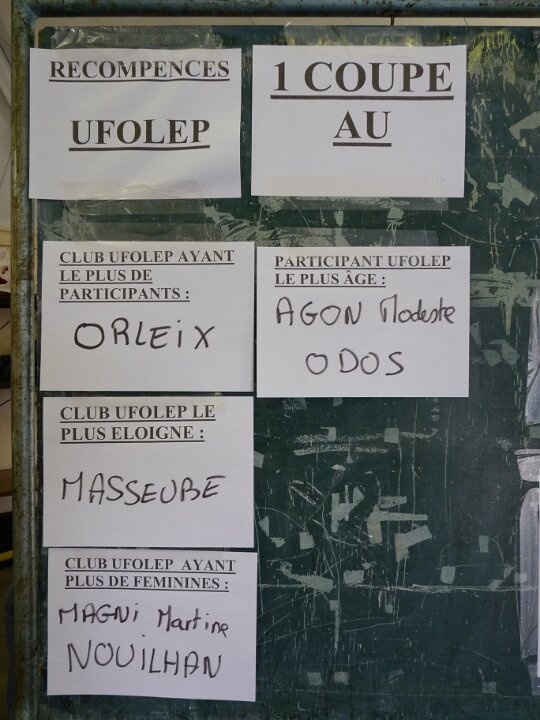 RECOMPENCES
UFOLEP
1 COUPE
AU
CLUB UFOLEP AYANT
LE PLUS DE
PARTICIPANTS :
ORLEiX
PARTICIPANT UFOLEP
LE PLUS ÂGE :
AGON Modeste
ODOS
CLUB UFOLEP LE
PLUS ELOIGNE :
MASSEUBE
CLUB UFOLEP AYANT
PLUS DE FEMININES :
MAGNi Martine
NOUiLHAN